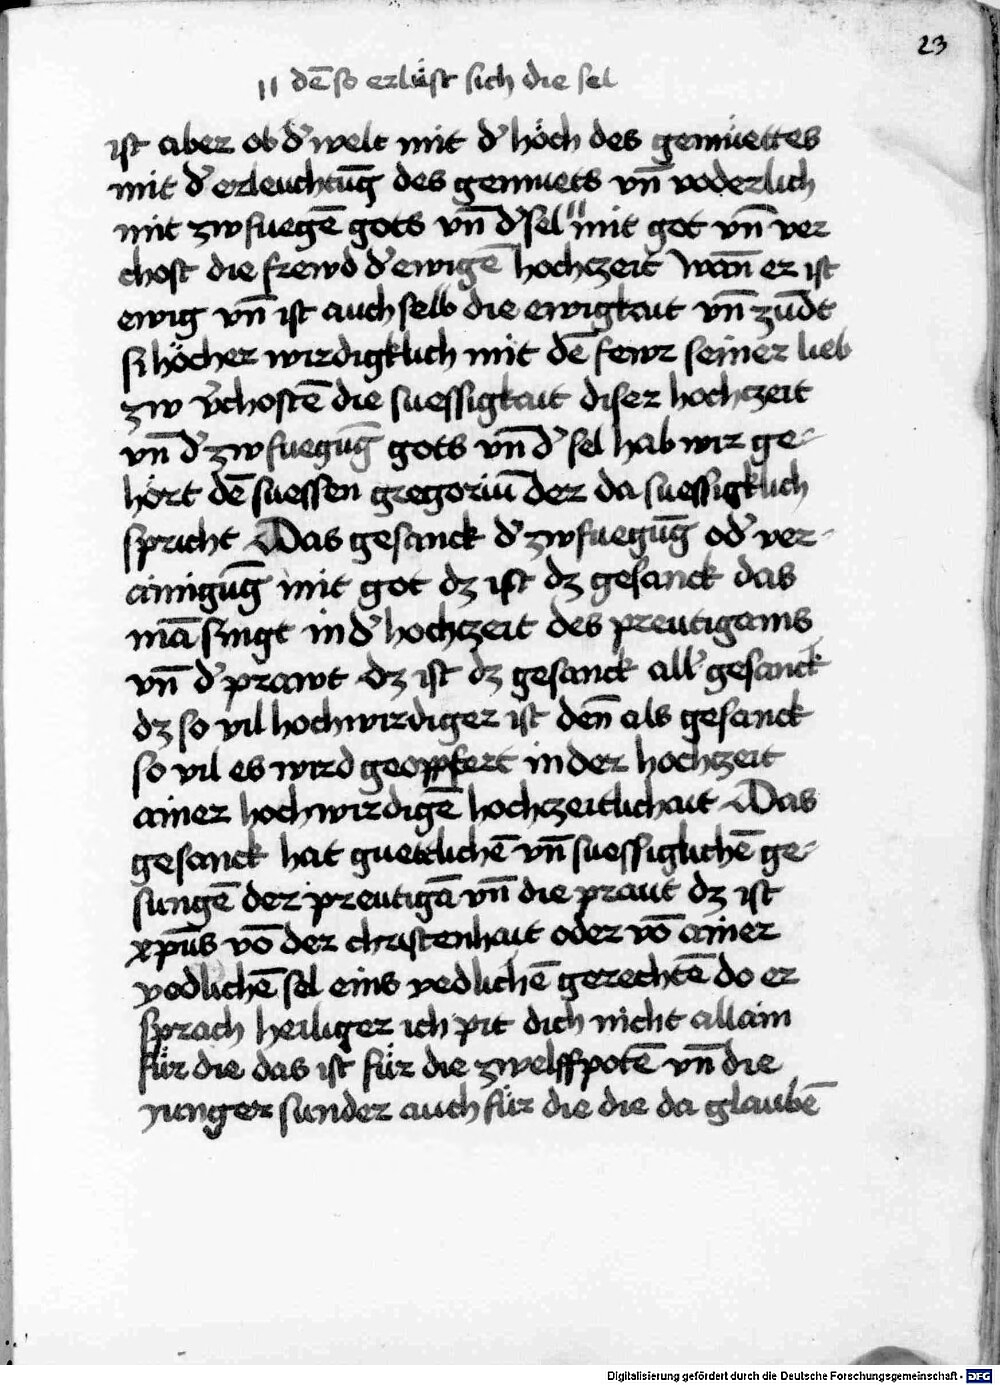 23
|| dē so erlüst sich die sel
ist aber ob d' welt mit d' höch des gemüettes
mit d' erleuchtūg des gemuets vn̄ voderlich
mit zwfuegē gots vn̄ d' sel || mit got vn̄ ver
chost die frewd d' ewigē hochczeit wān er ist
ewig vn̄ ist auch selb die ewigkait vn̄ zūdt
si höcher wirdigklich mit dē fewr seiner lieb
zw v'chostē die suessigkait diser hochczeit
vn̄ d' zwfuegūg gots vn̄ d' sel hab wir ge-
hört dē suessen gregoriū der da suessigklich
spricht Das gesanck d' zwfuegūg od' ver-
ainigūg mit got dz ist dz gesanck das
mā singt in d' hochczeit des preutigams
vn̄ d' prawt dz ist dz gesanck all' gesanck
dz so vil hochwirdiger ist den̄ als gesanck
so vil es wird geopffert in der hochczeit
ainer hochwirdigē hochczeitlichait Das
gesanck hat guetlichē vn̄ suessiglichē ge-
sungē der preutigā vn̄ die praut dz ist
xp̄us vō der christenhait oder vō ainer
yedlichē sel eins yedlichē gerechtē do er
sprach heiliger ich pit dich nicht allain
für die das ist für die zwelffpotē vn̄ die
junger sunder auch für die die da glaubē
Digitalisierung gefördert durch die Deutsche Forschungsgemeinschaft - DFG